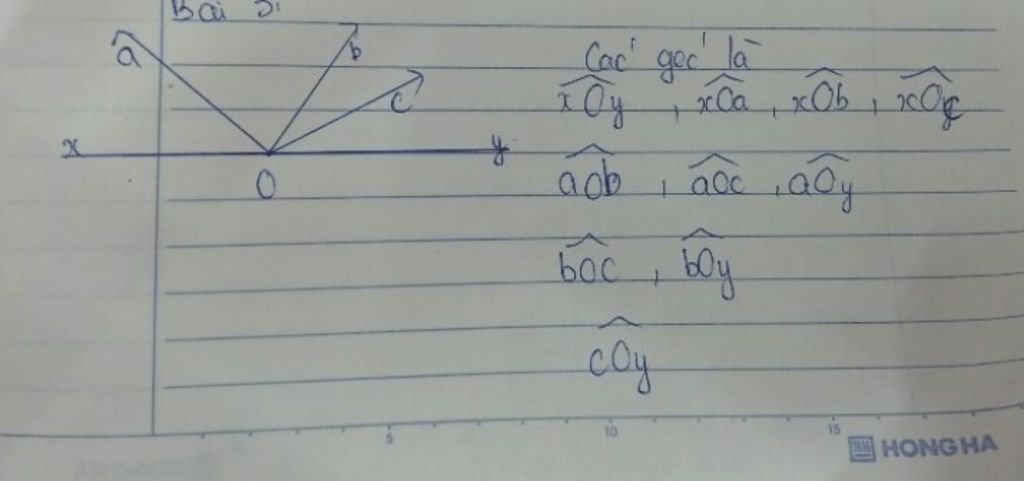 Bài 5:
a
b
c
x
y
O
Các góc là
xOy , xOa , xOb , xOc
aOb , aOc , aOy
bOc , bOy
cOy
5 10 15
HONG HA